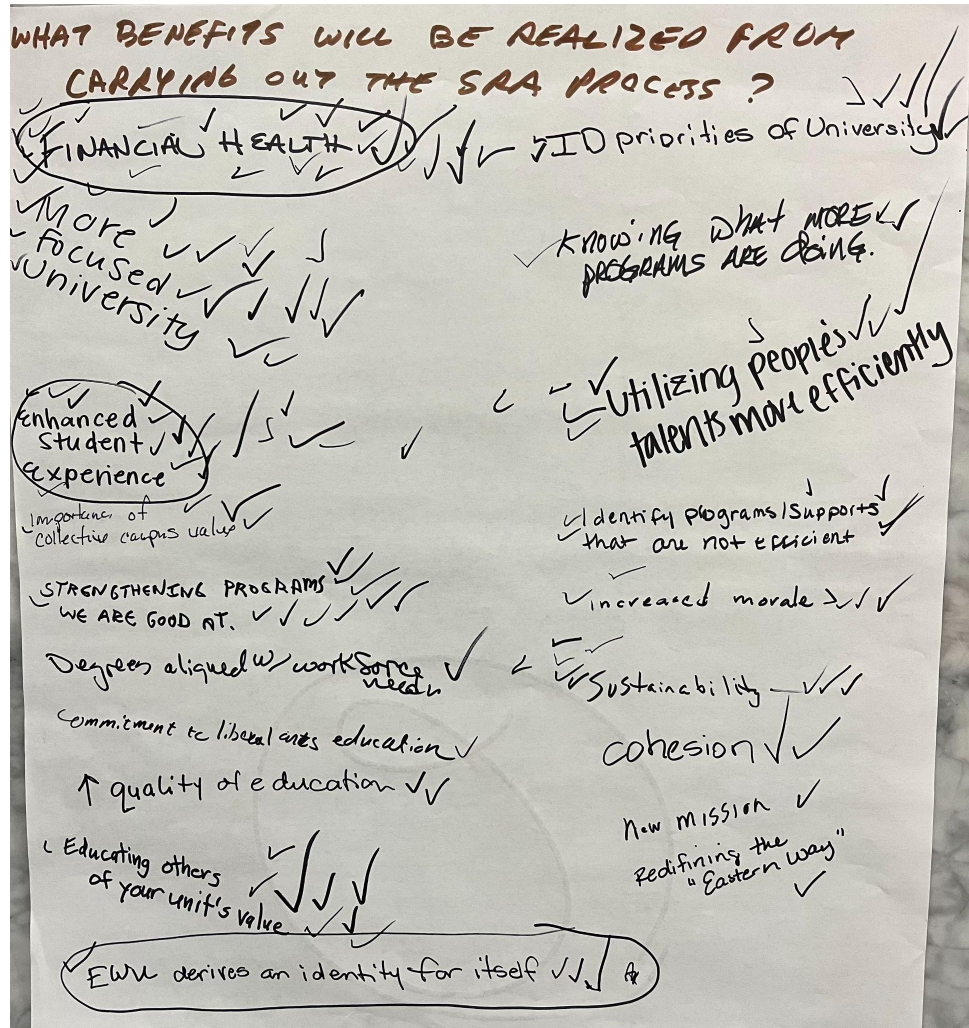 WHAT BENEFITS WILL BE REALIZED FROM
CARRYING OUT THE SRA PROCESS?
FINANCIAL HEALTH
More
focused
University
Enhanced
Student
Experience
Importance of
collective campus value
STRENGTHENING PROGRAMS
WE ARE GOOD AT.
Degrees aligned w/ workforce
needs
Commitment to liberal arts education
↑ quality of education
Educating others
of your unit's value
EWU derives an identity for itself
ID priorities of University
KNOWING WHAT MORE
PROGRAMS ARE doiNG.
Utilizing people's
talents more efficiently
Identify programs/supports
that are not efficient
increased morale
Sustainability
cohesion
New mission
Redifining the
"Eastern Way"